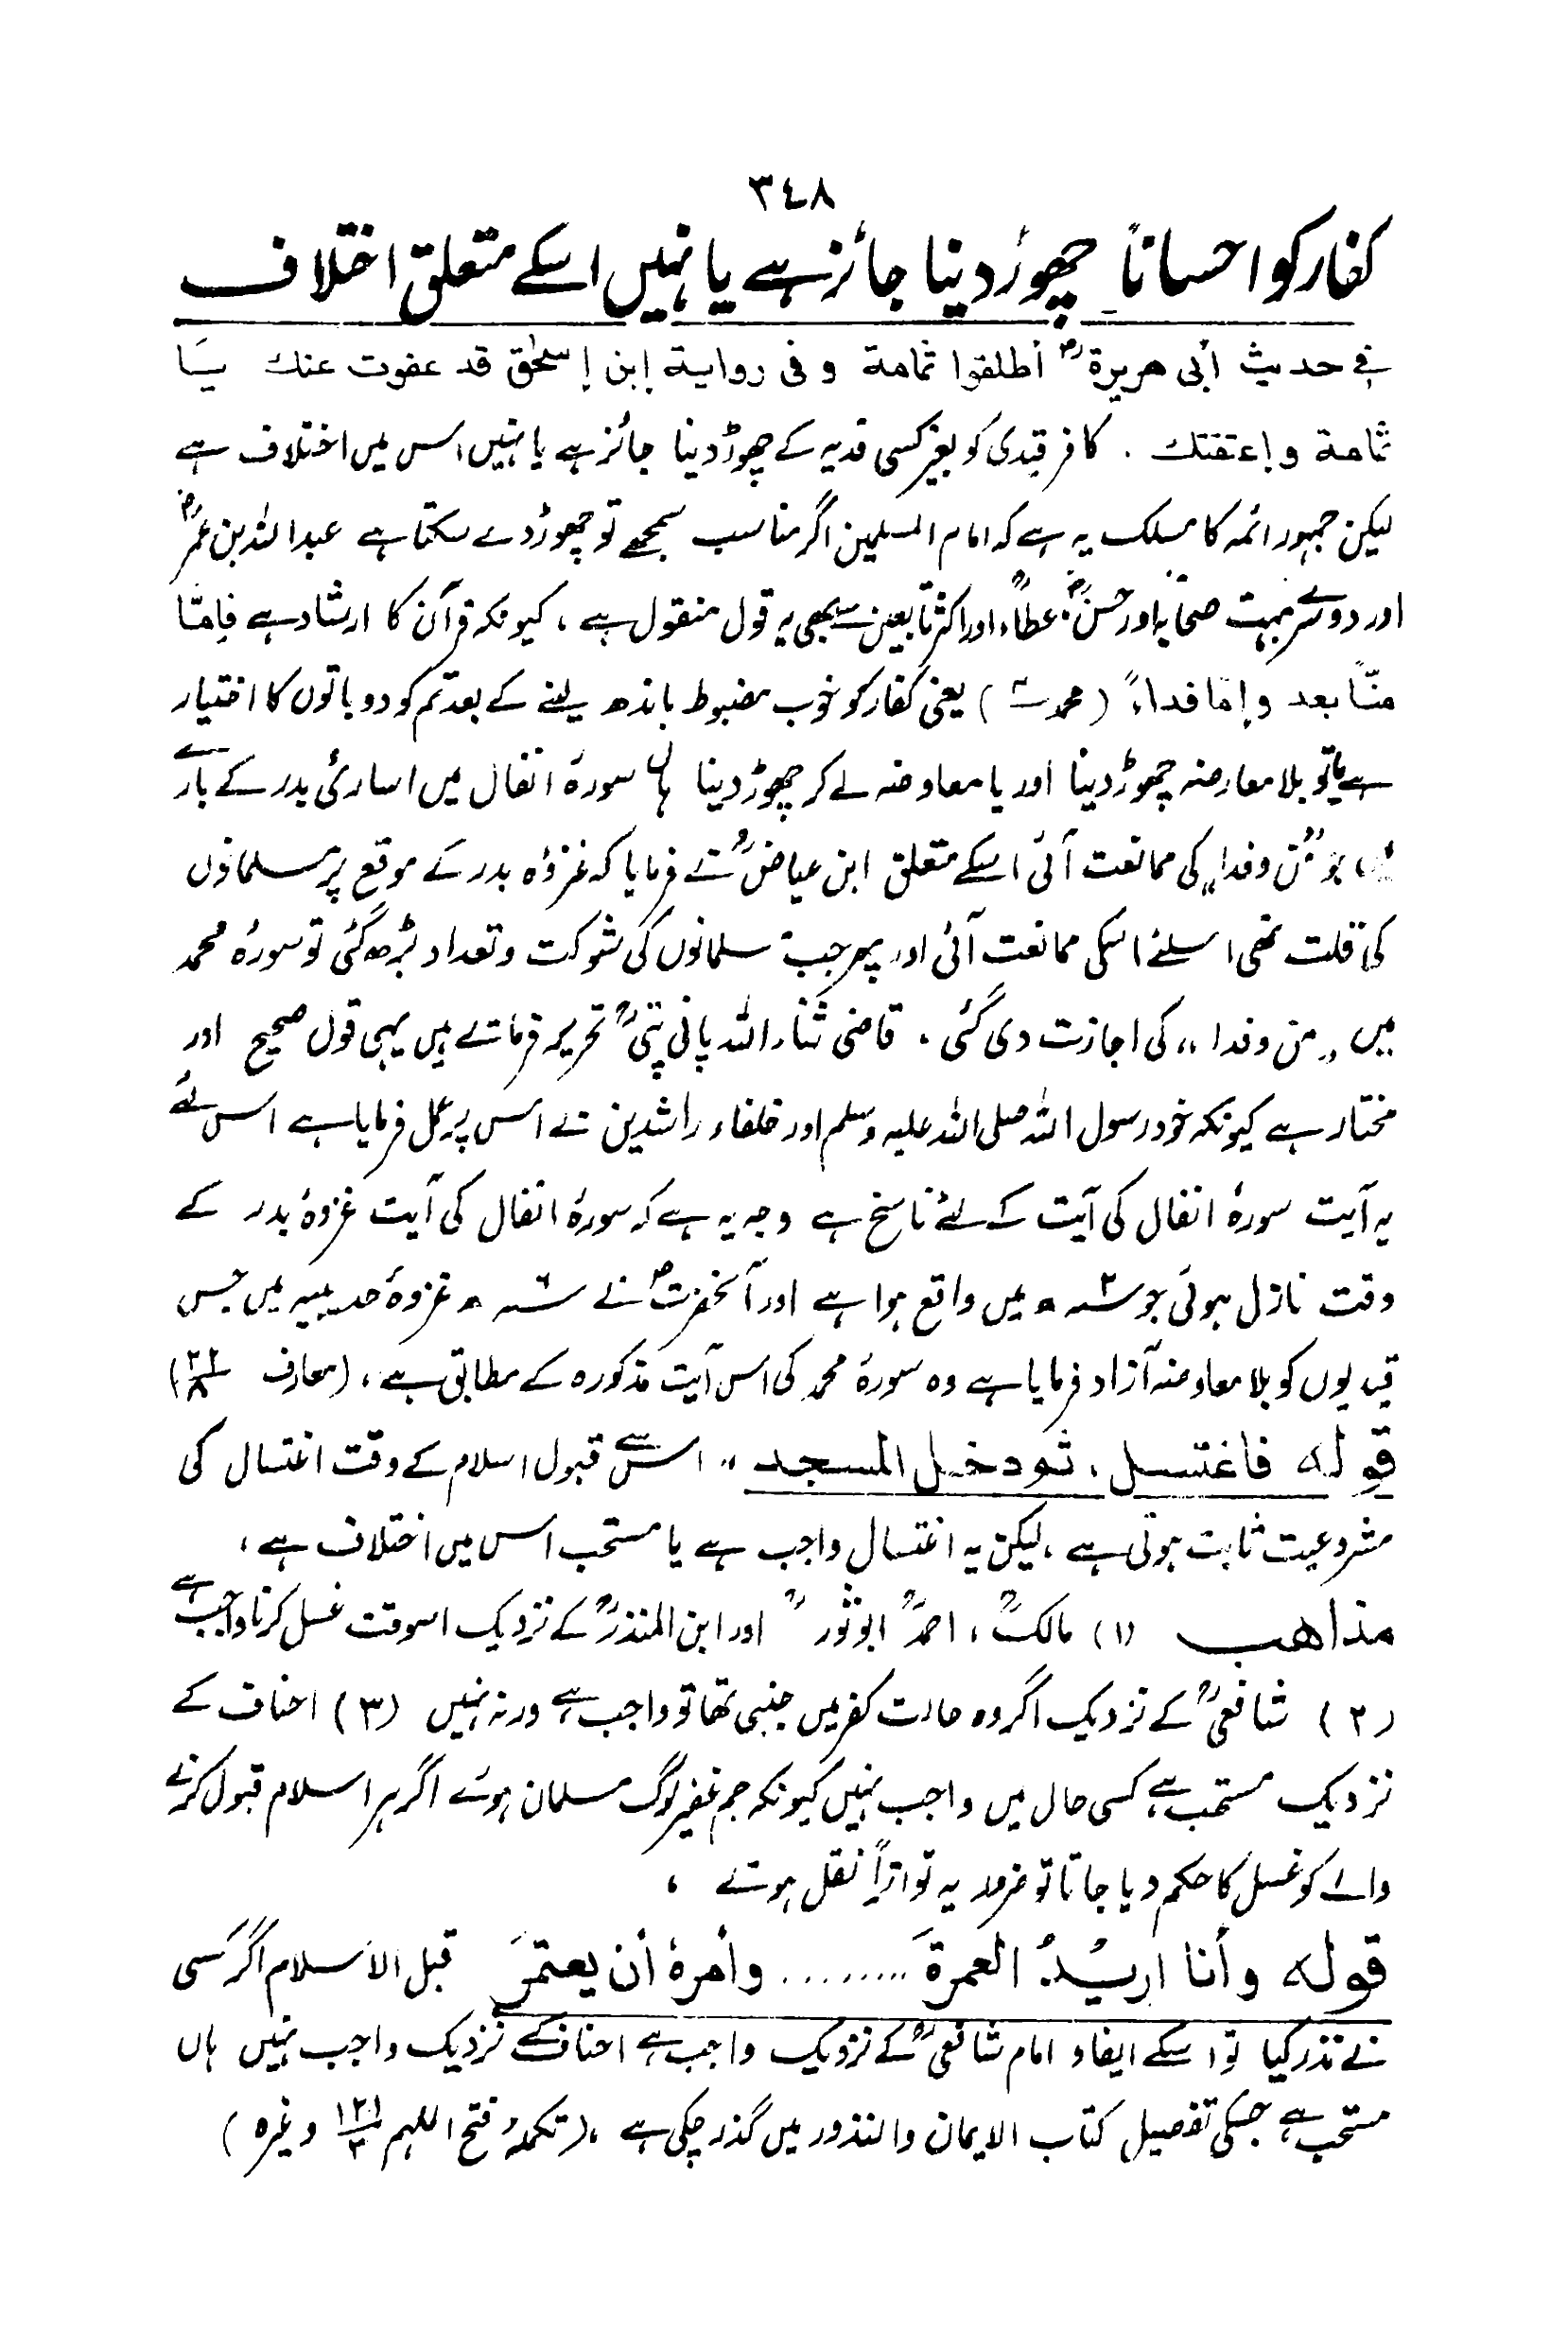 ٣٤٨
کفار کو احسانًا چھوڑ دینا جائز ہے یا نہیں اسکے متعلق اختلاف
فی حدیث أبی ھریرة رضـ أطلقوا ثمامة و فی روایة إبن إسحٰق قد عفوت عنك یا
ثمامة و إعتقتك . کافر قیدی کو بغیر کسی فدیہ کے چھوڑ دینا جائز ہے یا نہیں اس میں اختلاف ہے
لیکن جمہور ائمہ کا مسلک یہ ہے کہ امام المسلمین اگر مناسب سمجھے تو چھوڑ دے سکتا ہے عبداللہ بن عمرؓ
اور دوسرے بہت صحابہؓ اور حسنؒ، عطاءؒ اور اکثر تابعین سے بھی یہ قول منقول ہے ، کیونکہ قرآن کا ارشاد ہے فإمّا
منّاً بعد و إمّا فداءً (محمد ت) یعنی کفار کو خوب مضبوط باندھ لینے کے بعد تم کو دو باتوں کا اختیار
ہے یا تو بلا معاوضہ چھوڑ دینا اور یا معاوضہ لے کر چھوڑ دینا ہاں سورۂ انفال میں اساریٔ بدر کے بارے
میں جو "من و فدا" کی ممانعت آئی اسکے متعلق ابن عیاضؒ نے فرمایا کہ غزوۂ بدر کے موقع پر مسلمانوں
کی قلت تھی اسلئے اسکی ممانعت آئی اور پھر جب مسلمانوں کی شوکت و تعداد بڑھ گئی تو سورۂ محمد
میں "من و فدا" کی اجازت دی گئی . قاضی ثناء اللہ پانی پتیؒ تحریر فرماتے ہیں یہی قول صحیح اور
مختار ہے کیونکہ خود رسول اللہ صلی اللہ علیہ وسلم اور خلفاء راشدین نے اس پر عمل فرمایا ہے اس لئے
یہ آیت سورۂ انفال کی آیت کے لئے ناسخ ہے وجہ یہ ہے کہ سورۂ انفال کی آیت غزوۂ بدر کے
وقت نازل ہوئی جو ٢ سنہ ھ میں واقع ہوا ہے اور آنحضرتؐ نے ٦ سنہ ھ غزوۂ حدیبیہ میں جس
قیدیوں کو بلا معاوضہ آزاد فرمایا ہے وہ سورۂ محمد کی اس آیت مذکورہ کے مطابق ہے ، (معارف ٢٢/٨)
قوله فاغتسل ، ثم دخل المسجد ،، اس سے قبول اسلام کے وقت اغتسال کی
مشروعیت ثابت ہوتی ہے ، لیکن یہ اغتسال واجب ہے یا مستحب اس میں اختلاف ہے ،
مذاهب (١) مالکؒ ، احمدؒ ابو ثورؒ اور ابن المنذرؒ کے نزدیک اسوقت غسل کرنا واجب ہے
(٢) شافعیؒ کے نزدیک اگر وہ حالت کفر میں جنبی تھا تو واجب ہے ورنہ نہیں (٣) احناف کے
نزدیک مستحب ہے، کسی حال میں واجب نہیں کیونکہ جم غفیر لوگ مسلمان ہوئے اگر ہر اسلام قبول کرنے
والے کو غسل کا حکم دیا جاتا تو ضرور یہ تواتراً نقل ہوتے ،
قوله و أنا اریدُ العمرةَ ........ و أمرهٔ أن یعتمرَ قبل الاسلام اگر کسی
نے نذر کیا تو اسکے ایفاء امام شافعیؒ کے نزدیک واجب ہے احناف کے نزدیک واجب نہیں ہاں
مستحب ہے جسکی تفصیل کتاب الایمان والنذور میں گذر چکی ہے ، (تکملۂ فتح الملہم ١٢١/٣ وغیرہ)